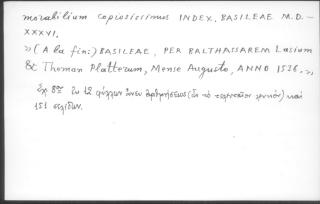 morabilium copiosissimus INDEX. BASILEAE M.D.–
XXXVI.
»(A la fin:) BASILEAE, PER BALTHASSAREM Lasium
& Thomam Platterum, Mense Augusto, ANNO 1536.»
Εἰς 8ον ἐκ 12 φύλλων ἄνευ ἀριθμήσεως ( τὸ λευκὸν) καὶ
151 σελίδων.